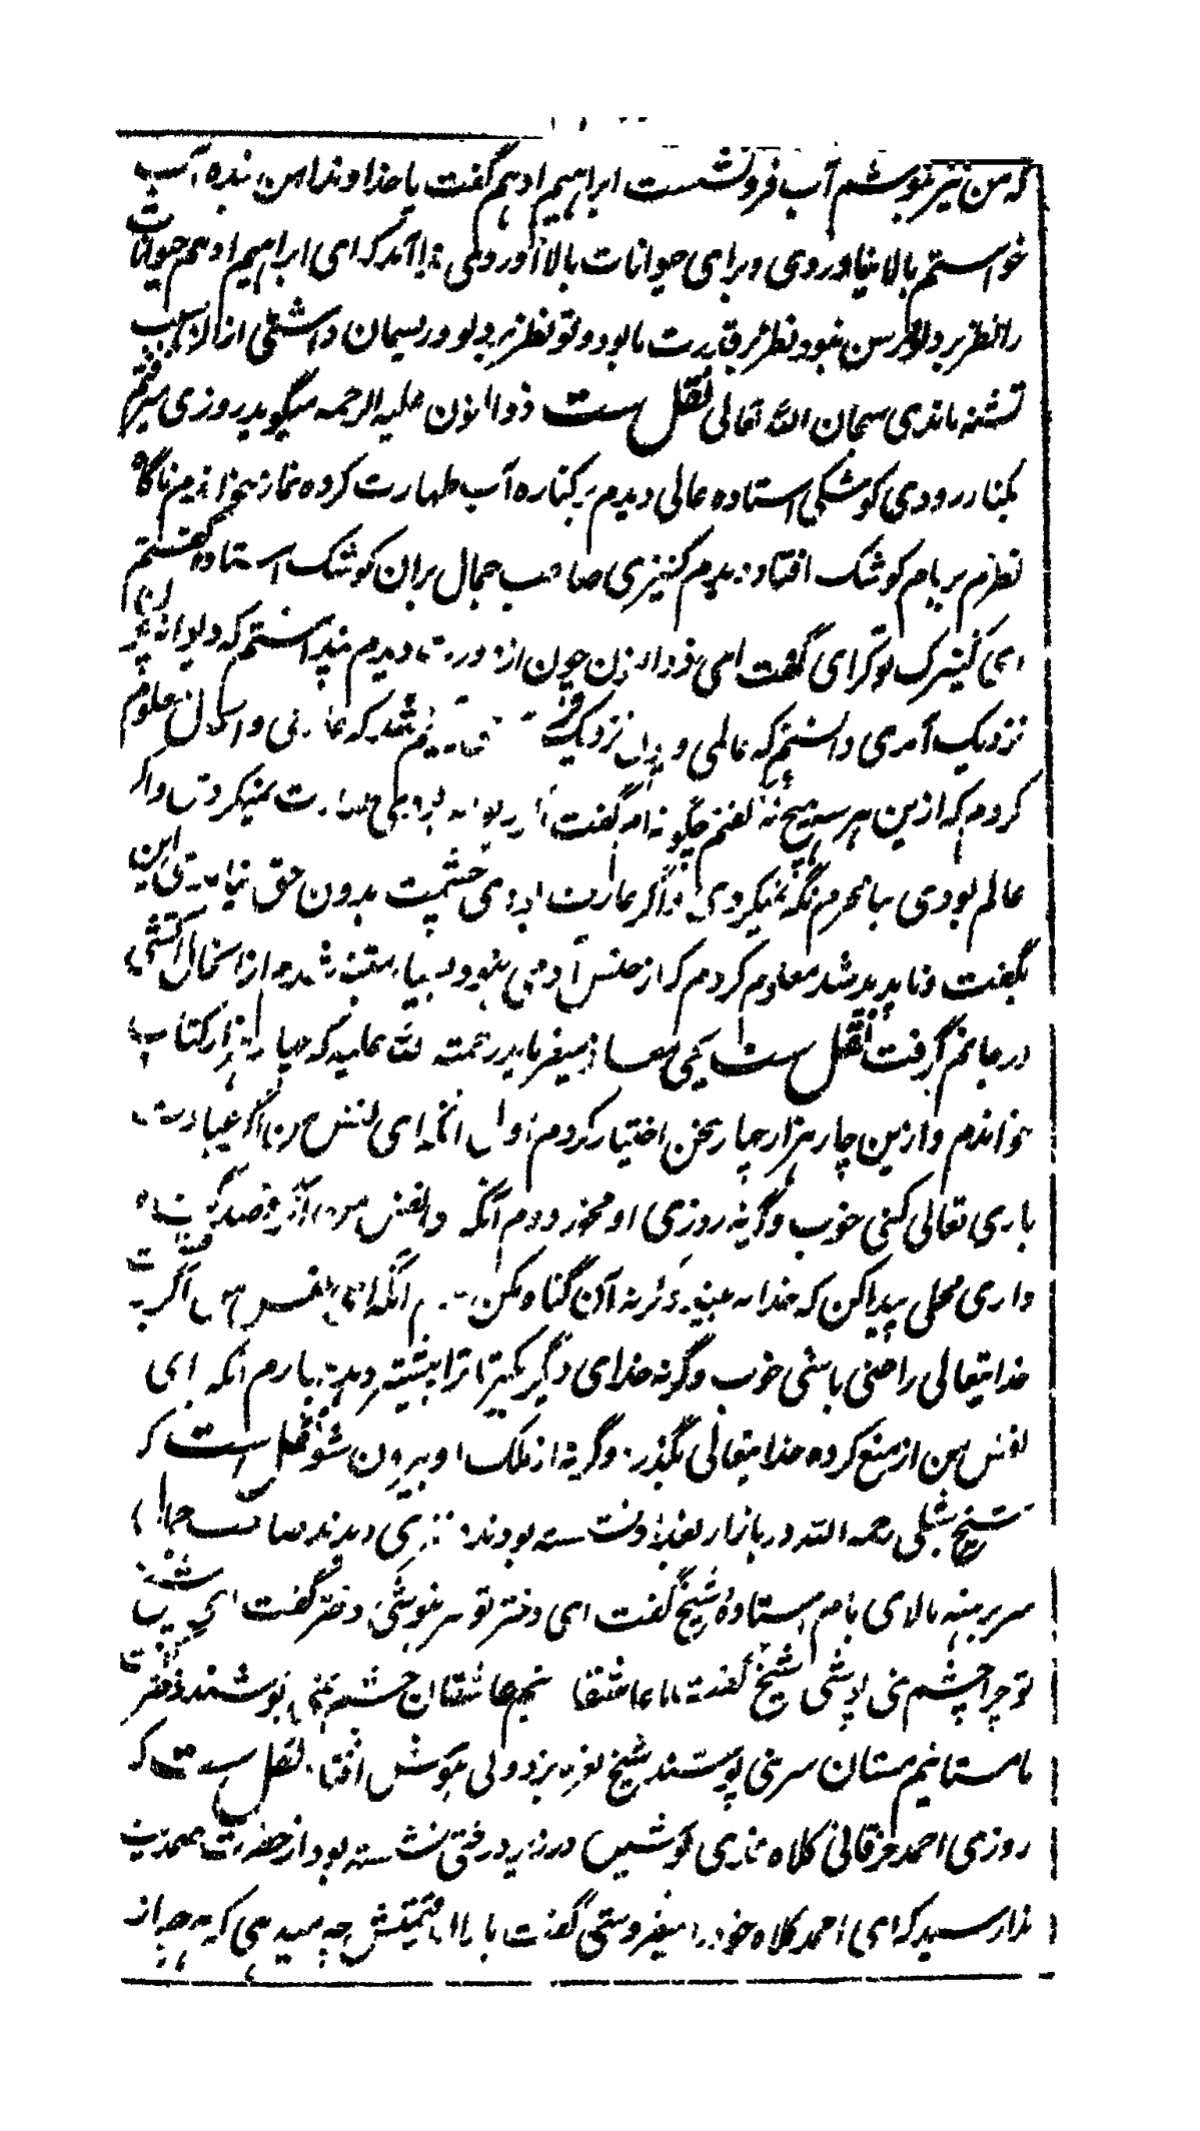 که من نیز بنوشم آب فرونشست ابراهیم ادهم گفت یا خداوندا من بنده آب
خواستم بالا نیاوردی و برای حیوانات بالا آوردی ندا آمد که ای ابراهیم ادهم حیوانات
را نظر بر دلو و رسن نبود نظر بر قدرت ما بود و تو نظر بر دلو و ریسمان داشتی ازان سبب
تشنه ماندی سبحان الله تعالی نقل ست ذوالنون علیه الرحمه میگوید روزی میرفتم
بکنار رودی کوشکی استاده عالی دیدم بر کناره آب طهارت کرده نماز بخواندم ناگاه
نظرم بر بام کوشک افتاد دیدم کنیزی صاحب جمال بران کوشک استاده گفتم
ای کنیزک تو کرای گفت ای ذوالنون چون از دورت دیدم پنداشتم که دیوانه چون
نزدیک آمدی دانستم که عالمی و چون نزدیک شد که عارفی و اکنون معلوم
کردم که ازین هر سه هیچ نه گفتم چگونه گفت اگر دیوانه بودی طهارت نمیکردی و اگر
عالم بودی بنامحرم نگه نمیکردی و اگر عارف بودی چشمت بدون حق نیامدی این
بگفت و ناپدید شد معلوم کردم که از جنس آدمی نبود بسیار متنبه شدم ازان حال آتشی
در جانم گرفت نقل ست یحیی معاذ میفرماید رحمته الله علیه که چهار هزار کتاب
خواندم و ازین چار هزار چار سخن اختیار کردم اول آنکه ای نفس من اگر عبادت
باری تعالی کنی خوب وگرنه روزی او مخور دوم آنکه و نفس من اگر قصد گناه
داری محلی پیدا کن که خدا نه بیند وگرنه آن گناه مکن سیوم آنکه ای نفس من اگر بقسمت
خدایتعالی راضی باشی خوب وگرنه خدای دیگر بگیر تا ترا بیشتر دهد چهارم آنکه ای
نفس من از منع کرده خدایتعالی بگذر وگرنه از ملک او بیرون شو نقل است که
شیخ شبلی رحمه الله در بازار بغداد نشسته بودند دختری دیدند صاحب جمال
سر برهنه بالای بام استاده شیخ گفت ای دختر تو سر نپوشی دختر گفت ای شیخ
تو چرا چشم نمی پوشی شیخ گفت ما عاشقانیم عاشقان چشم نمی پوشند دختر گفت
ما مستانیم مستان سر نمی پوشند شیخ نعره بزد و بی هوش افتاد نقل ست که
روزی احمد خرقانی کلاه نمدی در زیر درختی نشسته بود از حضرت صمدیت
ندا رسید که ای احمد کلاه خود را میفروشی گفت بارالها قیمتش چه میدهی که هرچه از